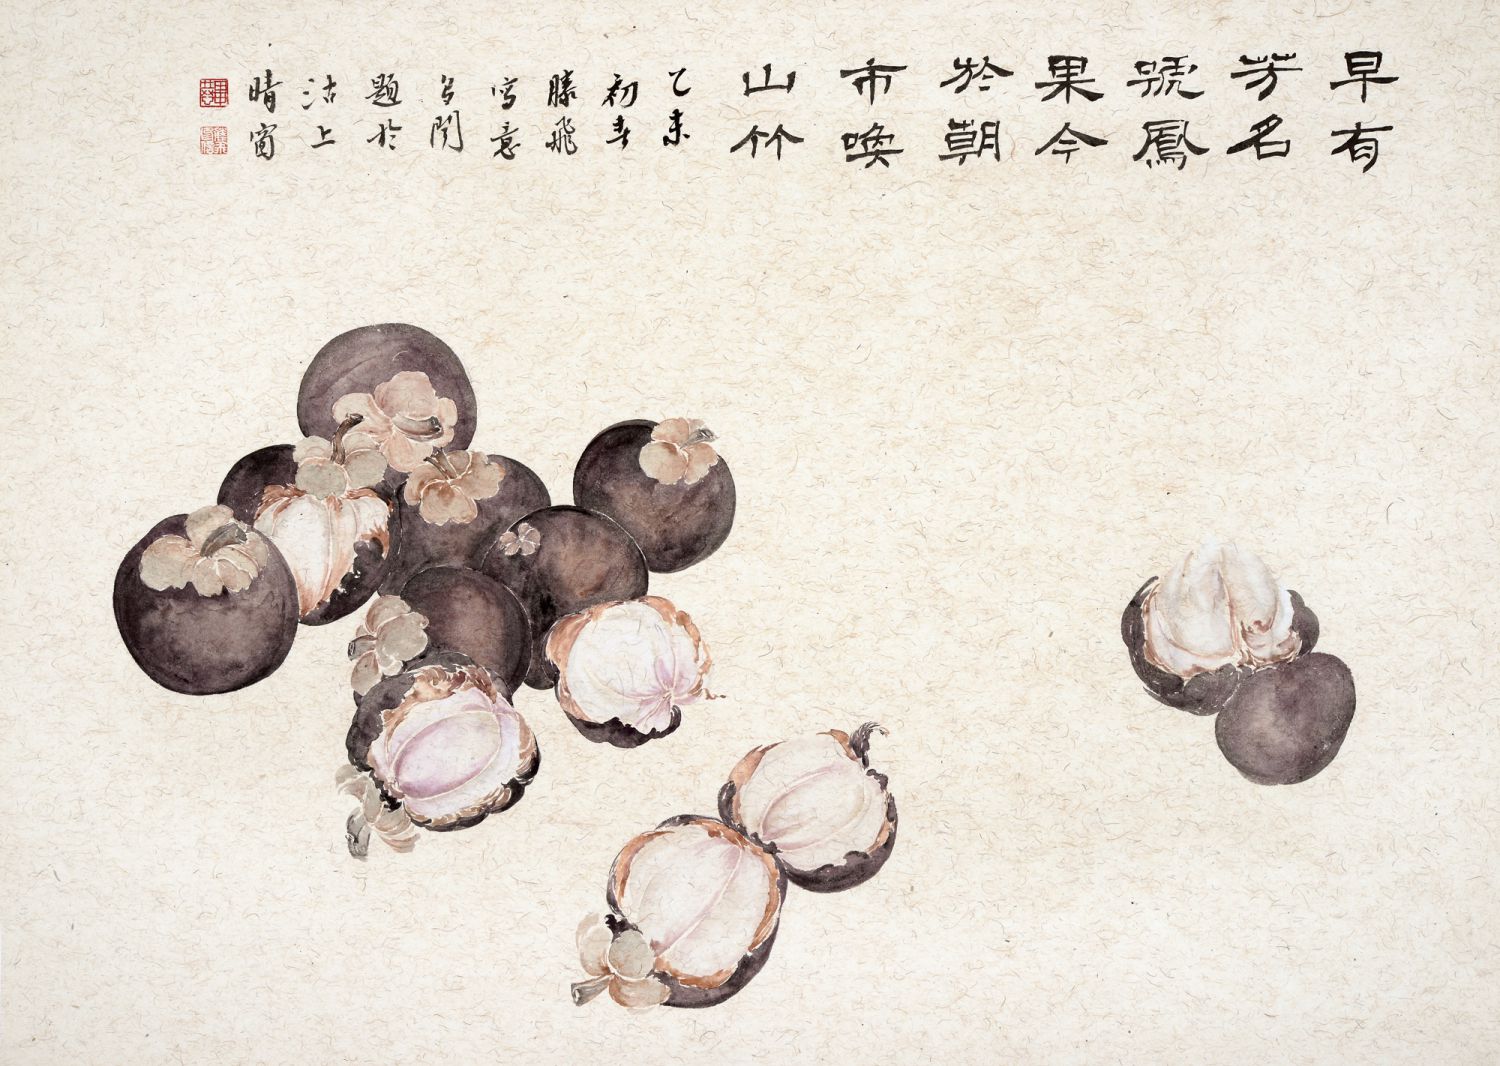 早有
芳名
號鳳
果今
於朝
市喚
山竹
乙未
初春
滕飛
写意
多閒
題於
沽上
晴窗